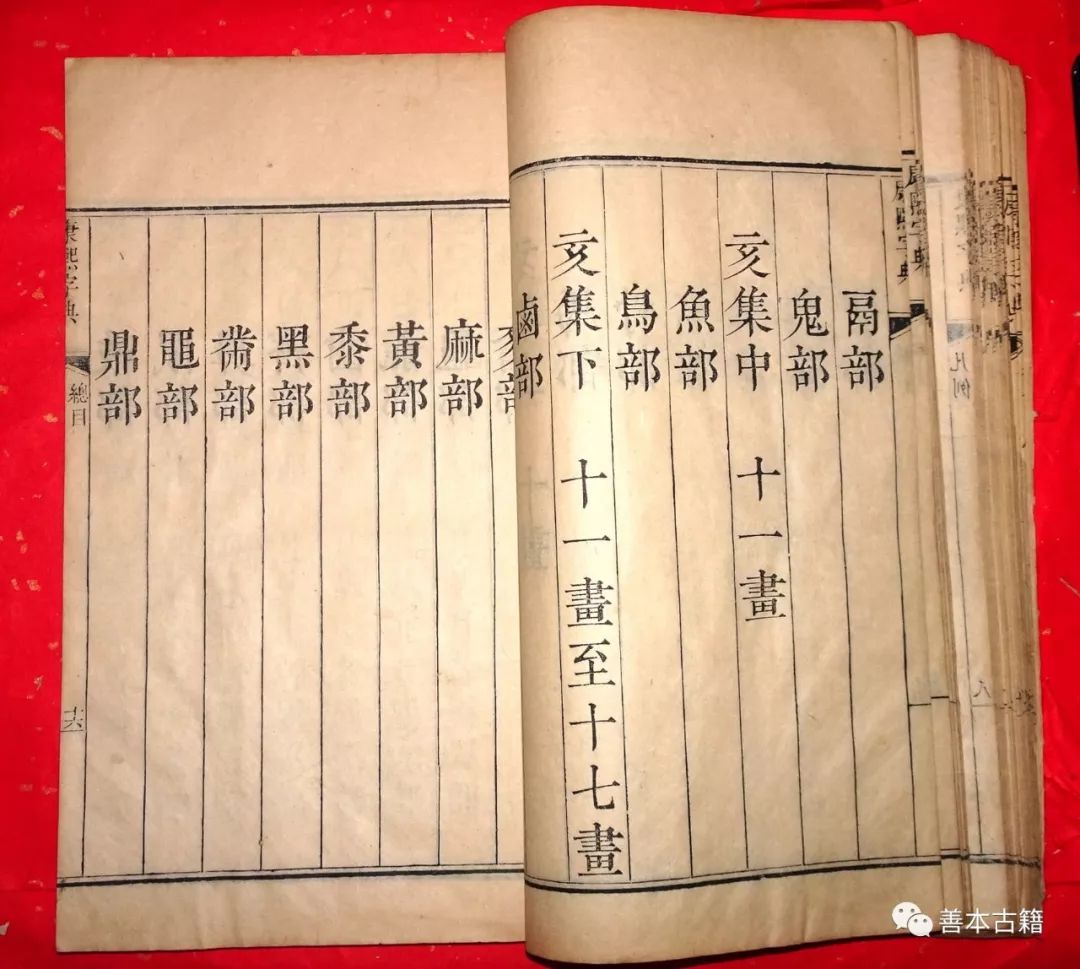 鬲部
鬼部
亥集中 十一畫
魚部
鳥部
亥集下 十一畫至十七畫
鹵部
麻部
黃部
黍部
黑部
黹部
黽部
鼎部
康熙字典
總目
十六
康熙字典
凡例
善本古籍